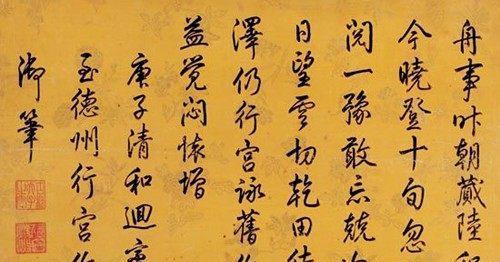 舟事昨朝蕆陸程
今曉登十旬忽
閱一豫敢忘兢
日望雲切乾田
澤仍行宮詠舊
益覺悶懷增
庚子清和迴
至德州行宮作
御筆